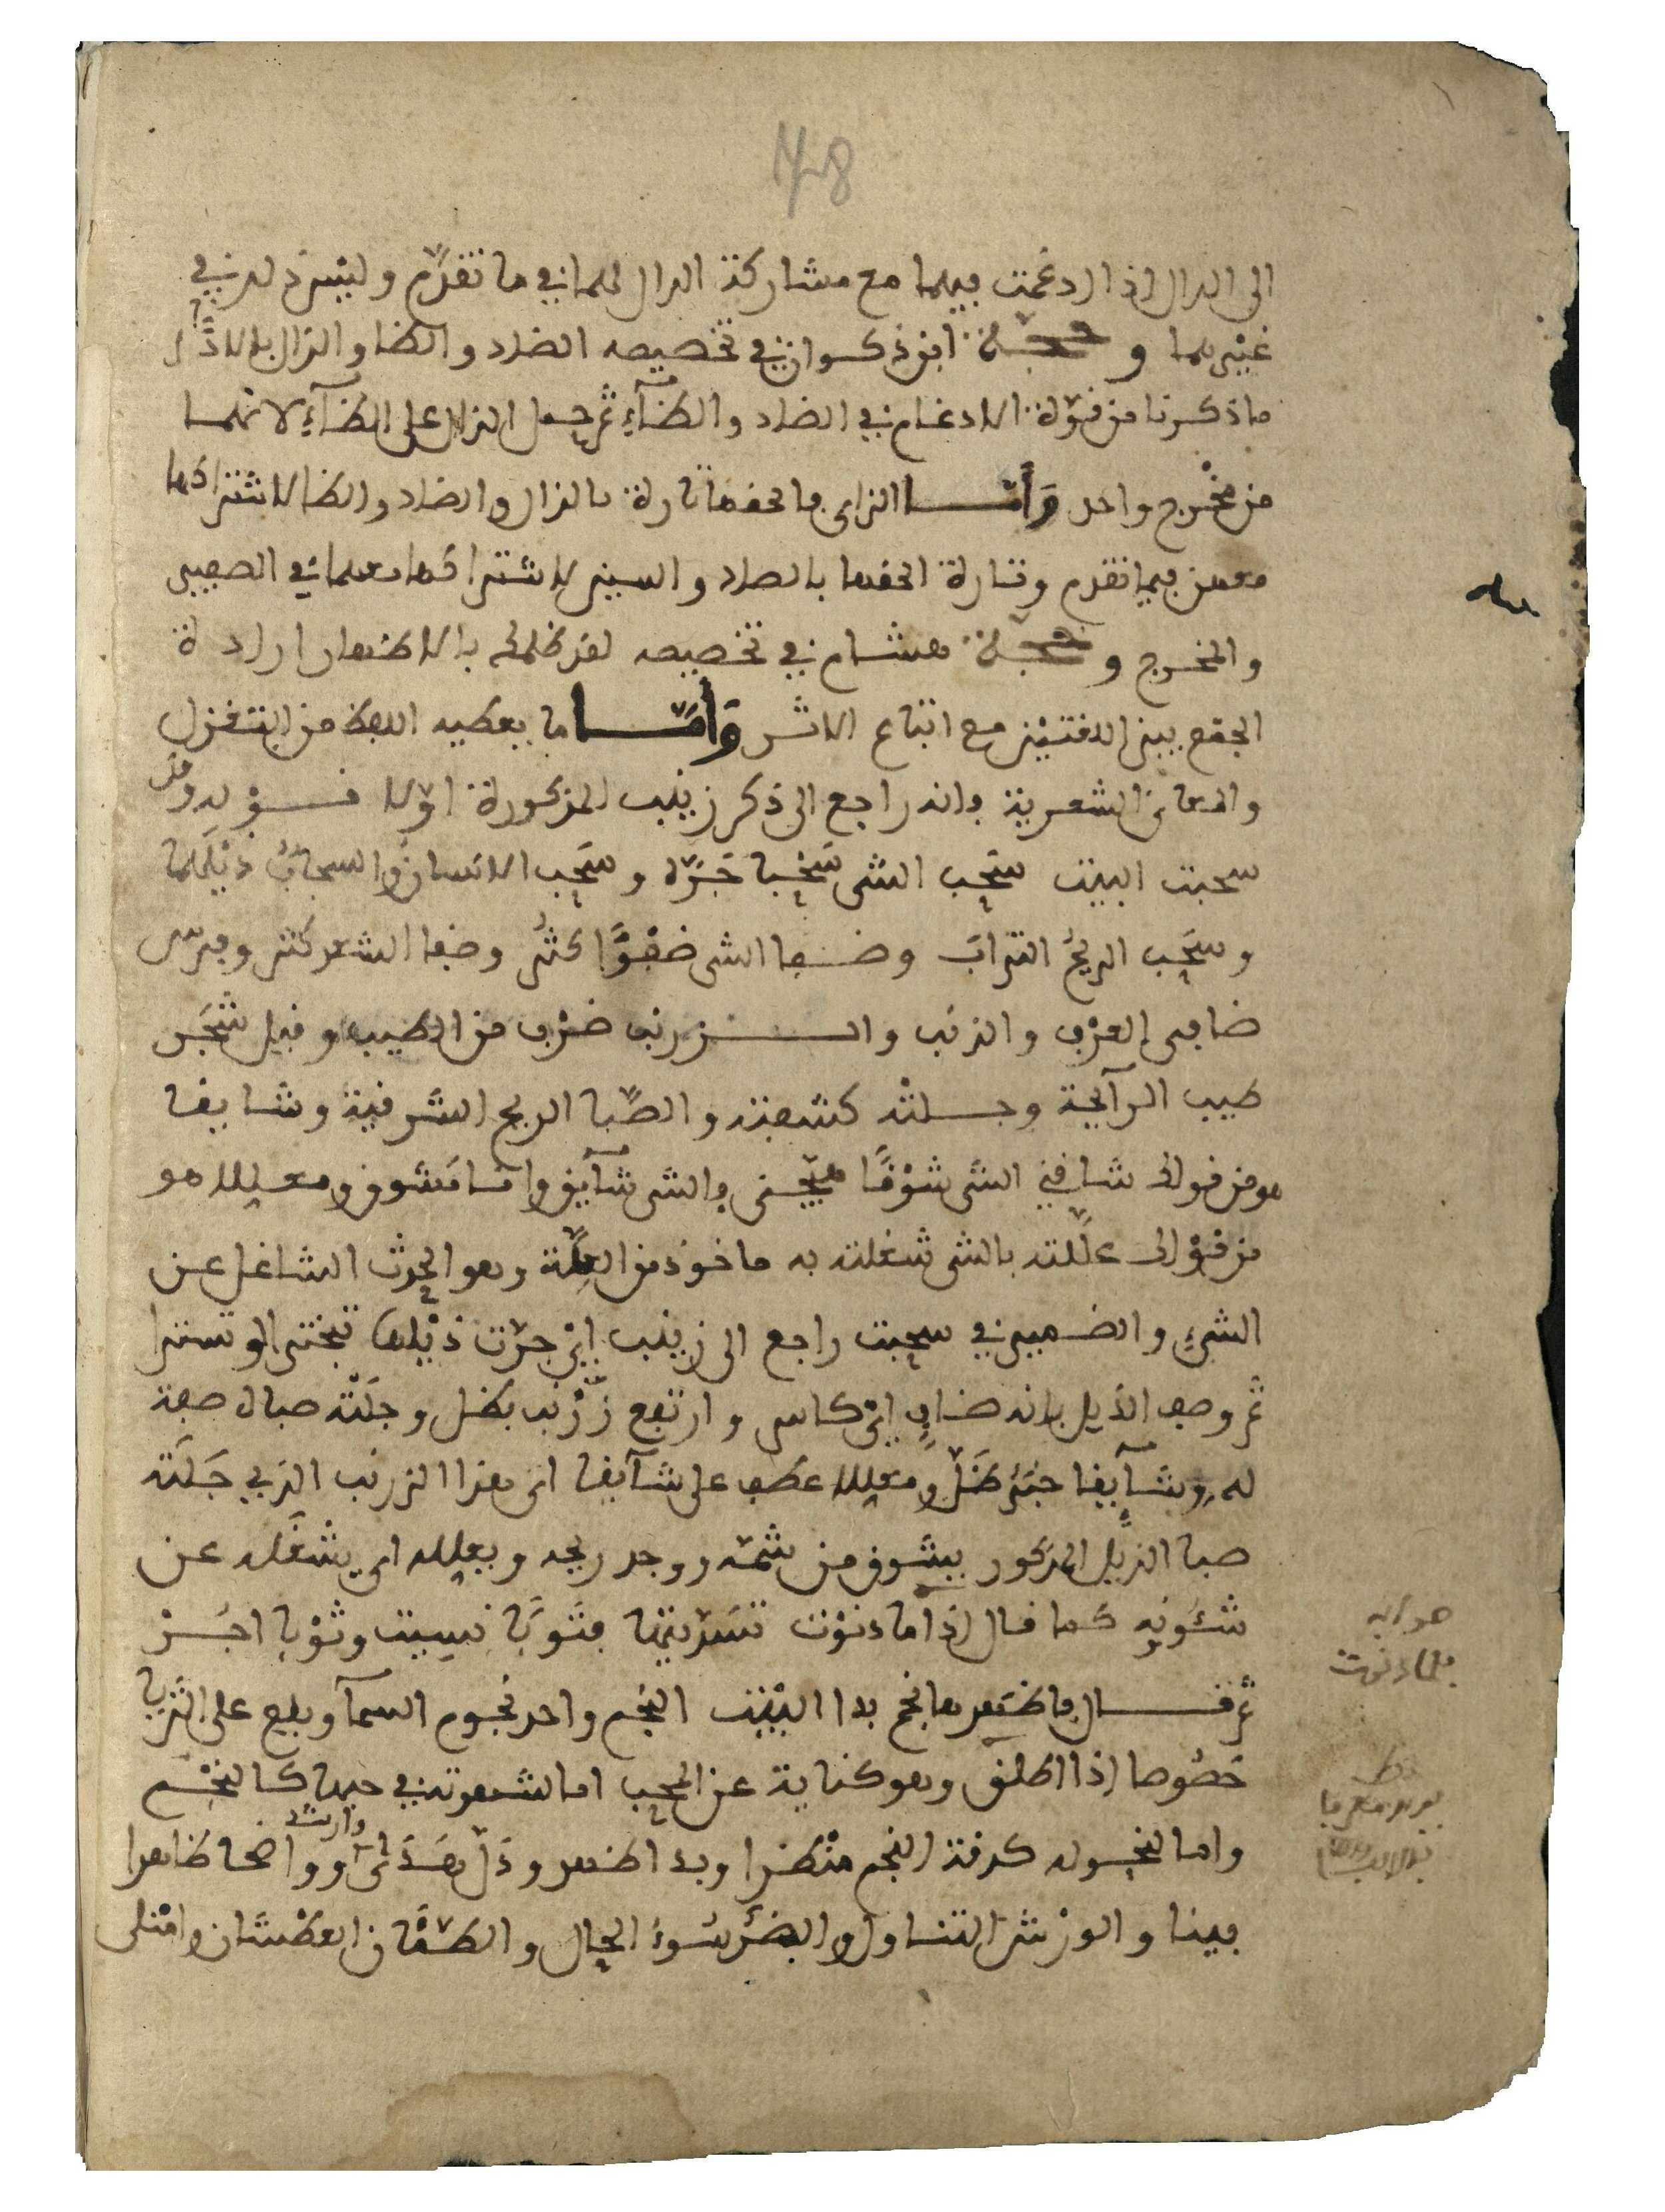 48
الى الدال اذا ادغمت فيهما مع مشاركة الدال لهما في ما تقدّم وليس ذلك في
غيرهما وحجة ابن ذكوان في تخصيصه الضاد والظا والذال بالادغام
ما ذكرنا من قوّة الادغام في الضاد والظآء ثم حمل الذال على الظآء لانهما
من مخْرج واحد وَأمّا الزاى فالحقها تارة بالذال والضاد والظا لاشتراكها
معهن فيما تقدم وتارة الحقها بالصاد والسين لاشتراكها معهما في الصفير
والمخرج وحجة هشام في تخصيصه لقد ظلمك بالاظهار ارادة
الجمع بين اللغتيْن مع اتباع الاثر وَأمّا ما يعطيه اللفظ من التغزل
والمعانى الشعرية فانه راجع الى ذكر زينب المذكورة اوّلا قوْله وقد
سحبت البيت سَحَب الشى سَحْبا جَرّه وسَحَب الانسان والسحابُ ذيْلَهَا
وسَحَب الريحُ الترابَ وضفا الشى ضفْوًا كثُر وضفا الشعر كثر وفرس
ضافى العرْف والذنَب والزرنب ضرْب من الطيب وقيل شَجَر
طيب الرآيحة وجلتْه كشفته والصّبا الريح الشرقية وشايقا
هو من قولك شاقني الشى شوْقًا هيّجنى والشى شآيق وانا مَشوق ومعللا هو
من قوْلك علّلته بالشى شغلته به ماخوذ من العِلّة وهو الحدث الشاغل عن
الشيءِ والضمير في سحبت راجع الى زينب ايْ جرّت ذيْلها تبختر او تسترا
ثم وصف الذيل بانه ضافٍ ايْ كاس وارتفع زرْنب بظل وجلَتْه صبا صفة
له وشآيقا خَبَرُ ظَلّ ومعللا عطف على شآيقا اى هذا الزرنب الذي جَلَتْه
صبا الذيل المذكور يشوق من شمّه ووجد ريحه ويعلله اي يشْغَله عن
شئونه كما قال اذا ما دنوْت تسَدّيتها فثَوْبًا نسيت وثوْبا اجُرْ
ثم قال فاظهرها نجم بدا البيْت النجم واحد نجوم السمآ ويقع على الثريا
خصُوصا اذا اطلق وهو كناية عن المحب اما لشهرته في حبها كالنجْم
واما لنحوله كدقة النجم منْظرا وبدا ظهر ودَلّ هَدَى وارشد وواضحا ظاهرا
بينا والورْش التناول والضُّر سُوءُ الحال والظمْان العطْشان وامْتلى
صوابه
فلما دنوت